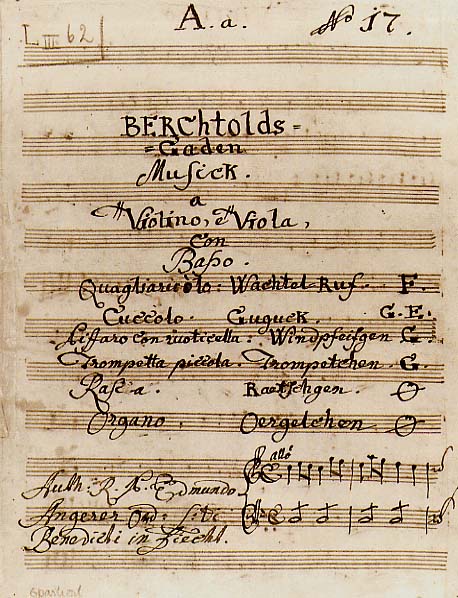 A. a. No 17.
L III 62
BERChtolds =
= Gaden
Musick.
a
II Violino, è II Viola,
con
Baßo.
Quagliaricolo: Wachtel Ruf. F.
Cuccolo. Guguck. G. E.
Zifaro con ruoticella: Windpfeifgen G.
Trompetta piccola. Trompetchen. G.
Rasca. Raetschgen.
Organo. Oergelchen
allo
Auth: R. P. Edmundo
Angerer Ord: Sti:
Benedicti in Fiecht.